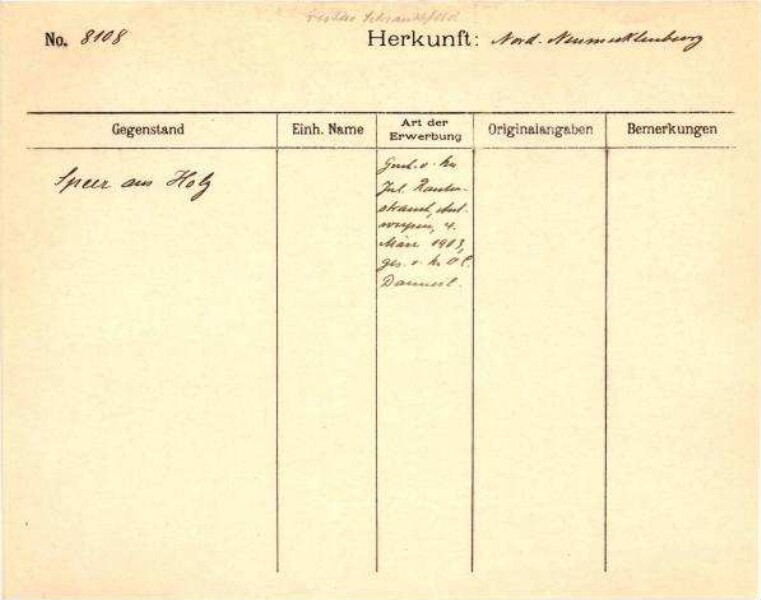 No. 8108
Herkunft: Nord-Neumecklenburg
Gegenstand
Einh. Name
Art der Erwerbung
Originalangaben
Bemerkungen
Speer aus Holz
v. Hr.
Jul. Rauten-
strauch, Ant-
werpen, 4.
März 1903,
ges. v. Hr.